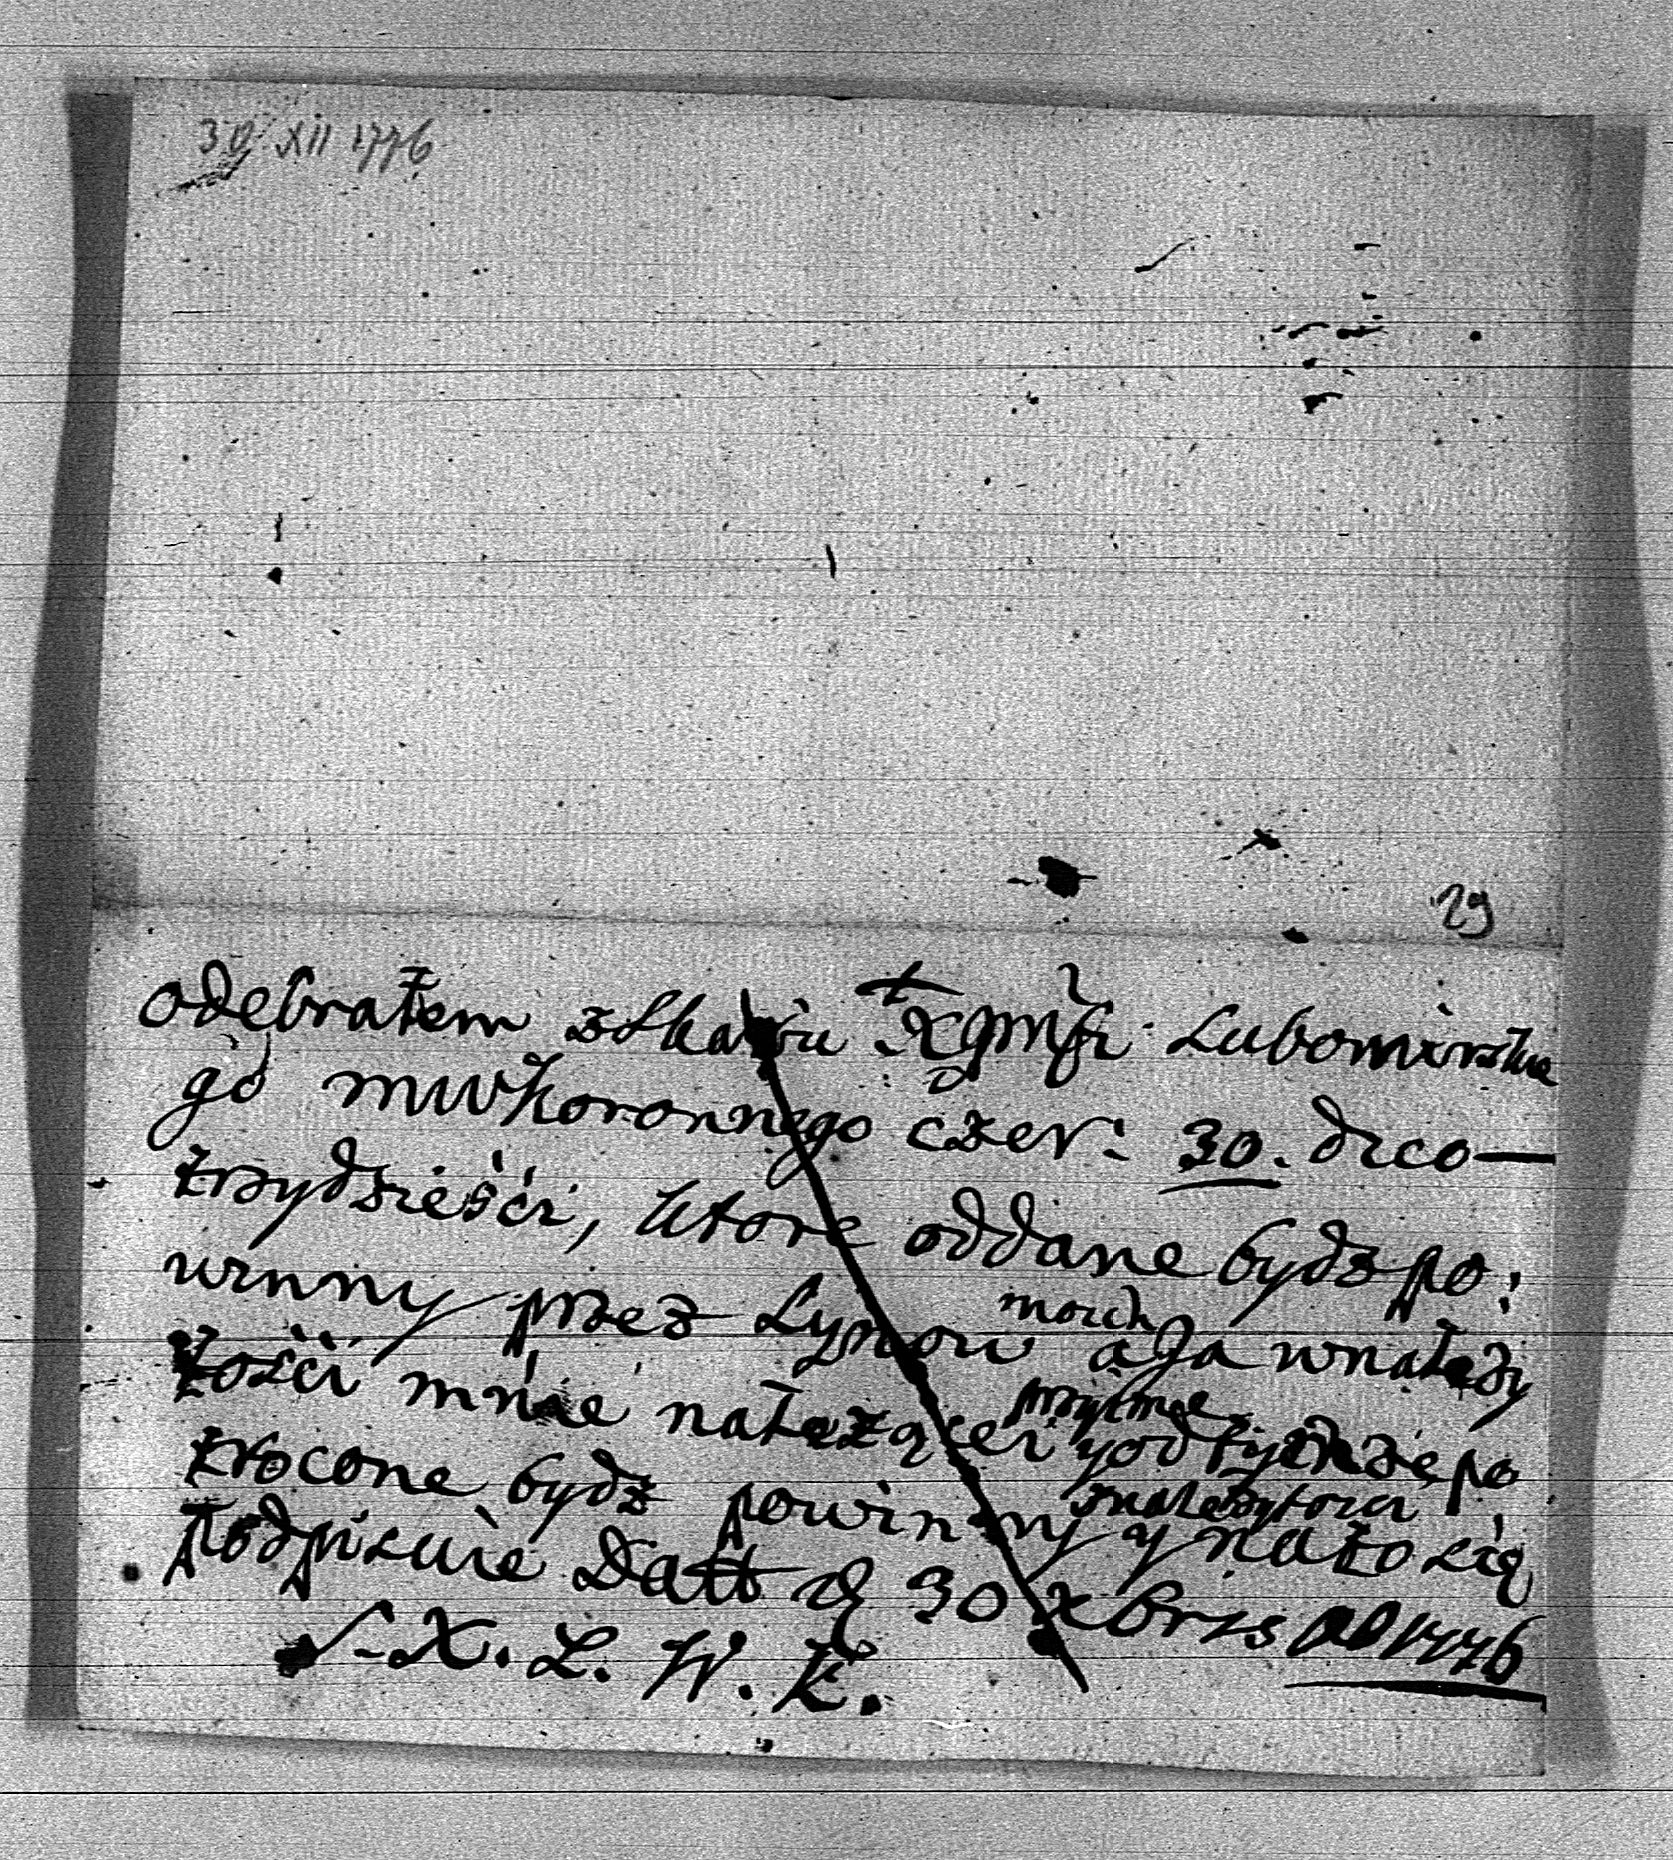 30 XII 1776
29
odebrałem zSkarbu X Lubomirskie
go MWKoronnego czer: 30. dico
trzydzieści, ktore oddane bydz po:
winny przez moich a Ja wnależy
tości mnie należącei przyimę
zwrocone bydz powinny y nato się
podpisuie Datt d 30 Xbris AD 1776
S. X. L. W. K.